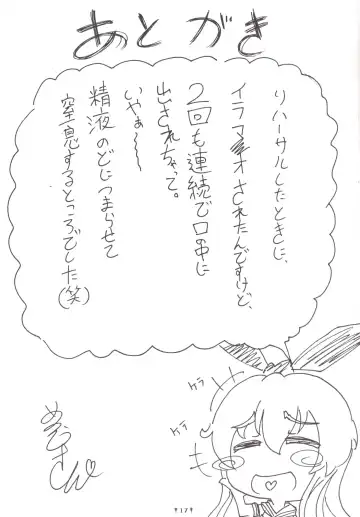 あとがき
リハーサルしたときに、
イラマチオされたんですけど、
2回も連続で口の中に
出されちゃって。
いやぁ〜〜
精液のどにつまらせて
窒息するところでした(笑)
ケラ
ケラ
17